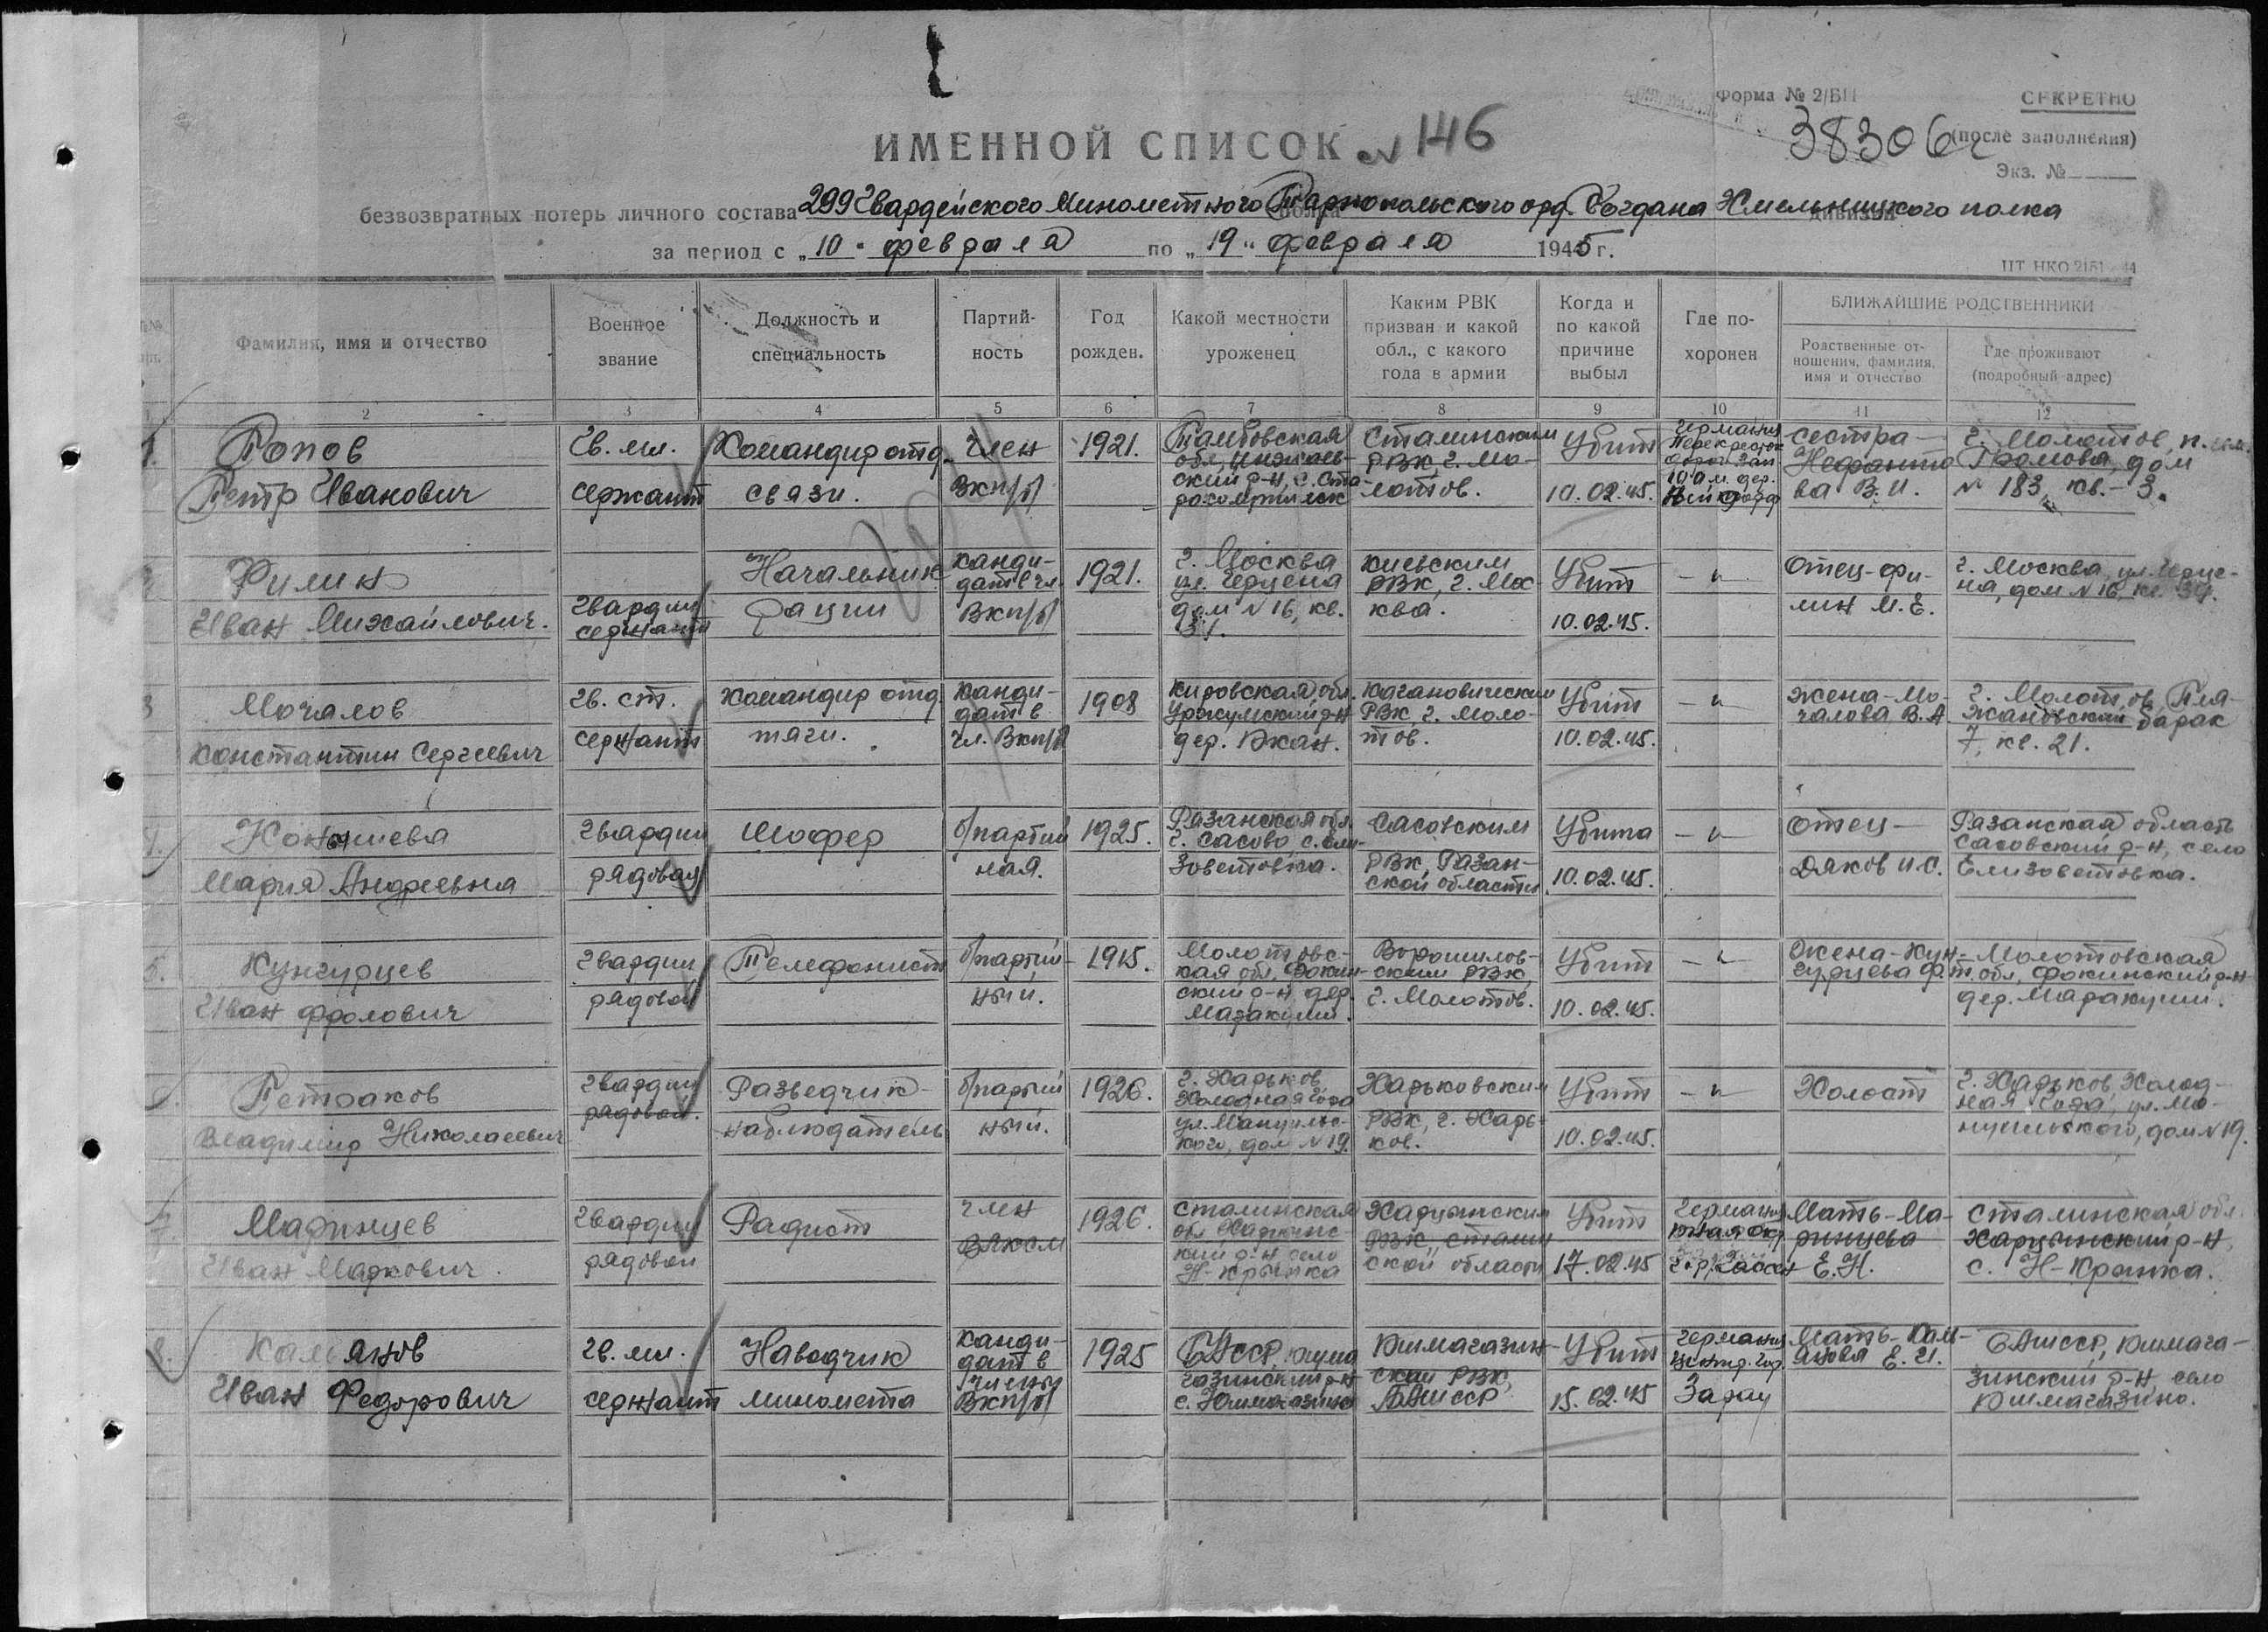 Форма № 2/БП
СЕКРЕТНО
38306с
(после заполнения)
Экз. №
ИМЕННОЙ СПИСОК N 146
безвозвратных потерь личного состава 299 Гвардейского Минометного Тарнопольского орд. Богдана Хмельницкого полка
за период с „10" февраля по „19" февраля 1945 г.
ЦТ НКО 2151 44
Фамилия, имя и отчество
Военное
звание
Должность и
специальность
Партий-
ность
Год
рожден.
Какой местности
уроженец
Каким РВК
призван и какой
обл., с какого
года в армии
Когда и
по какой
причине
выбыл
Где по-
хоронен
БЛИЖАЙШИЕ РОДСТВЕННИКИ
Родственные от-
ношения, фамилия,
имя и отчество
Где проживают
(подробный адрес)
2 3 4 5 6 7 8 9 10 11 12
1.
Попов
Петр Иванович
Гв. мл.
сержант
Командир отд.
связи.
член
ВКП/б/
1921.
Тамбовская
обл.
ский р-н, с. Ста-
Сталинским
РВК, г. Мо-
лотов.
Убит
10.02.45.
Германия
Перекресток
дорог Зап
100 м. дер.
сестра-
ва В.И.
г. Молотов,
Громова, дом
N 183, кв.- 3.
Филин
Иван Михайлович.
Гвардии
сержант
Начальник
рации
канди-
дат в чл.
ВКП/б/
1921.
г. Москва
ул. Герцена
дом N 16, кв.
31.
Киевским
РВК, г. Мос
ква.
Убит
10.02.45.
-"-
Отец-Фи-
лин М.Е.
г. Москва, ул. Герце-
на, дом N 16, кв. 31.
3
Мочалов
Константин Сергеевич
Гв. ст.
сержант
Командир отд.
тяги.
канди-
дат в
чл. ВКП/б/
1908
Кировская обл.
Уржумский р-н
дер. Ажан.
Кагановическим
РВК, г. Моло-
тов.
Убит
10.02.45.
-"-
жена-Мо-
чалова В.А
г. Молотов,
барак
7, кв. 21.
4.
Конышева
Мария Андреевна
Гвардии
рядовая
Шофер
б/партий
ная.
1925.
Рязанская обл.
г. Сасово, с. Ели-
зоветовка.
Сасовским
РВК, Рязан-
ской области
Убита
10.02.45.
-"-
отец-
Дяков И.С.
Рязанская область
Сасовский р-н, село
Елизоветовка.
5.
Кунгурцев
Иван Фролович
Гвардии
рядовой
Телефонист
б/партий-
ный.
1915.
Молотовс-
кая обл., Фокин-
ский р-н, дер.
Маракуши.
Ворошилов-
ским РВК,
г. Молотов.
Убит
10.02.45.
-"-
Жена-Кун-
гурцева Ф.Т.
Молотовская
обл., Фокинский р-н
дер. Маракуши.
Петраков
Владимир Николаевич
Гвардии
рядовой.
Разведчик-
наблюдатель
б/партий
ный.
1926.
г. Харьков
Холодная Гора
ул. Мануильс-
кого, дом N 19.
Харьковским
РВК, г. Харь-
ков.
Убит
10.02.45.
-"-
Холост
г. Харьков, Холод-
ная Гора, ул. Ма-
нуильского, дом N 19.
7.
Маринцев
Иван Маркович.
Гвардии
рядовой
Радист
член
ВЛКСМ
1926.
Сталинская
обл. Харцызс-
кий р-н село
Н-Крынка
Харцызским
РВК, Сталин
ской области
Убит
17.02.45
Германия
Южная окр.
Мать-Ма-
ринцева
Е.Н.
Сталинская обл.
Харцызский р-н,
с. Н-Крынка.
8.
Кальянов
Иван Федорович
Гв. мл.
сержант
Наводчик
миномета
канди-
дат в
члены
ВКП/б/
1925
БАССР, Кирма
газинский р-н
Кишмагазин-
ским РВК,
БАШССР
Убит
15.02.45
Германия
центр. гор.
Зарау
Мать-Каль-
янова Е.И.
БАШССР, Кишмага-
зинский р-н, село
Кишмагазино.